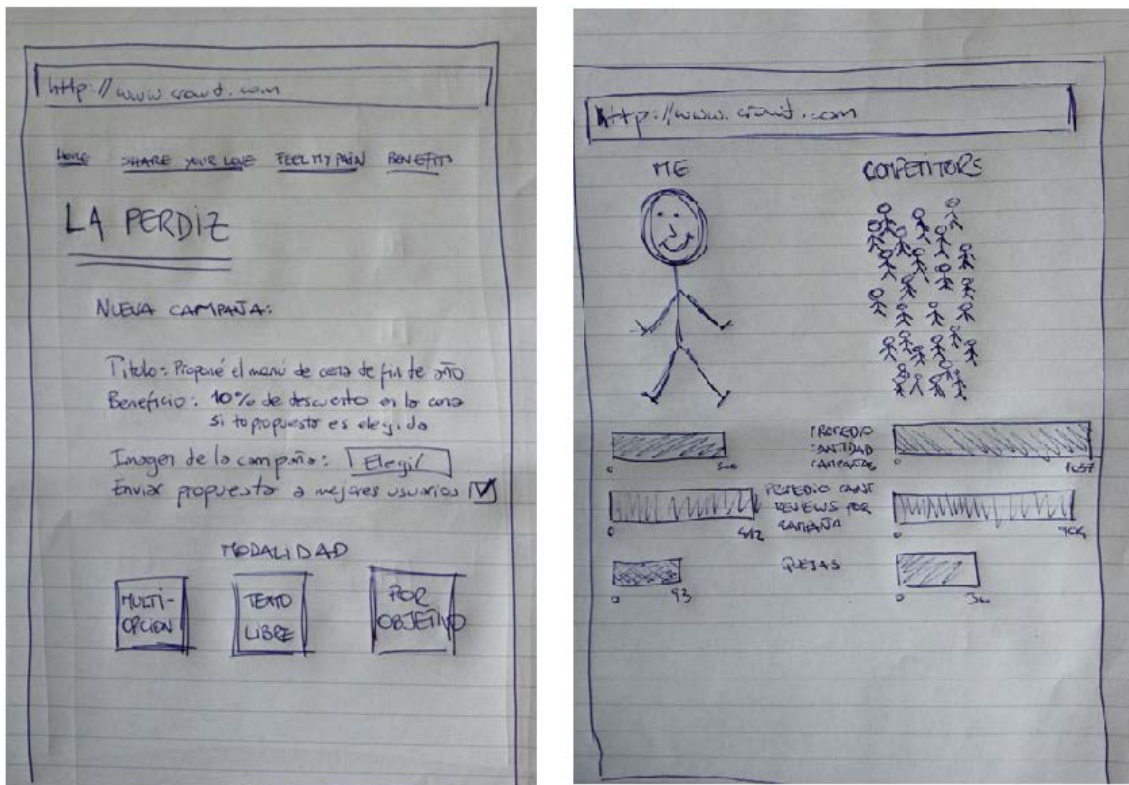 http://www.crowd.com
HOME SHARE YOUR LOVE FEEL MY PAIN BENEFITS
LA PERDIZ
NUEVA CAMPAÑA:
Titulo: Proponé el menú de cena de fin de año
Beneficio: 10% de descuento en la cena
si tu propuesta es elegida
Imagen de la campaña: Elegir
Enviar propuesta a mejores usuarios
MODALIDAD
MULTI-
OPCION
TEXTO
LIBRE
POR
OBJETIVO
http://www.crowd.com
ME COMPETITORS
PROMEDIO
CANTIDAD
CAMPAÑAS
0
0
PROMEDIO CANT
REVIEWS POR
CAMPAÑA
0
0
QUEJAS
0 93
0